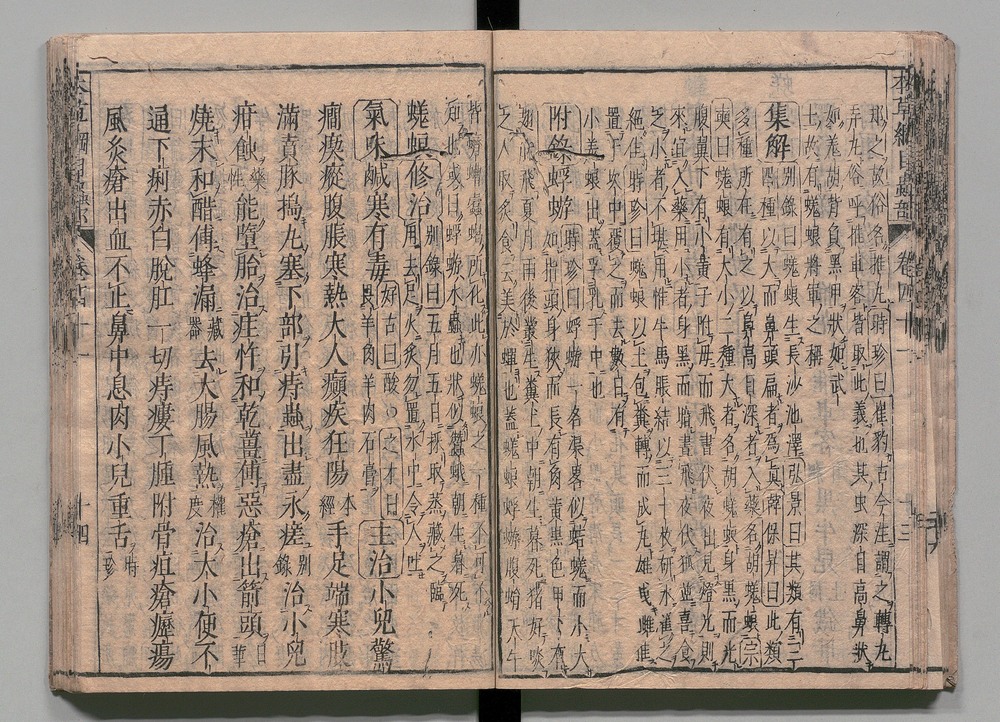 本草綱目蟲部 卷四十一 十三
水之故俗名推丸時珍曰崔豹古今注謂之轉丸
弄丸俗呼推車客皆取此義也其虫深目高鼻狀
如羗胡背負黑甲狀如武
士故有蜣蜋將軍之稱
集解
別錄曰蜣蜋生長沙池澤弘景曰其類有三
四種以大而鼻頭扁者為眞韓保昇曰此類
多種所在有之以鼻高目深者入藥名胡蜣蜋宗
奭曰蜣蜋有大小二種大者名胡蜣蜋身黑而光
腹翼下有小黃子附母而飛晝伏夜出見燈光則
來宜入藥用小者身黑而暗晝飛夜伏狐並喜食
之小者不堪用惟牛馬脹結以三十枚研水灌之
絕佳時珍曰蜣蜋以土包糞轉而成丸雄曳雌推
置於坎中覆之而去數日有
小蜣蜋出蓋孚乳于中也
附錄蜉蝣
時珍曰蜉蝣一名渠畧似蛣蜣而小大
如指頭身狹而長有角黃黑色甲下有
翅能飛夏月雨後叢生糞土中朝生暮死猪好啖
之人取炙食云美於蟬也蓋蜣蜋蜉蝣腹蛸天牛
皆蠐螬蠹蝎所化此亦蜣蜋之一種不可不
知也或曰蜉蝣水蟲也狀似蠶蛾朝生暮死
蜣螟修治
別錄曰五月五日採取蒸藏之臨
用去足火炙勿置水中令人吐
氣味鹹寒有毒好古曰酸之才曰畏羊角羊肉石膏主治小兒驚
癇瘈瘲腹脹寒熱大人癲疾狂陽本經手足端寒肢
滿賁豚搗丸塞下部引痔蟲出盡永瘥別錄治小兒
疳蝕藥性能墮胎治疰忤和乾薑傅惡瘡出箭頭日華
燒末和醋傅蜂漏藏器去大腸風熱權度治大小便不
通下痢赤白脫肛一切痔瘻丁腫附骨疽瘡癧瘍
風灸瘡出血不止鼻中息肉小兒重舌時珍
本草綱目蟲部 卷四十一 十四